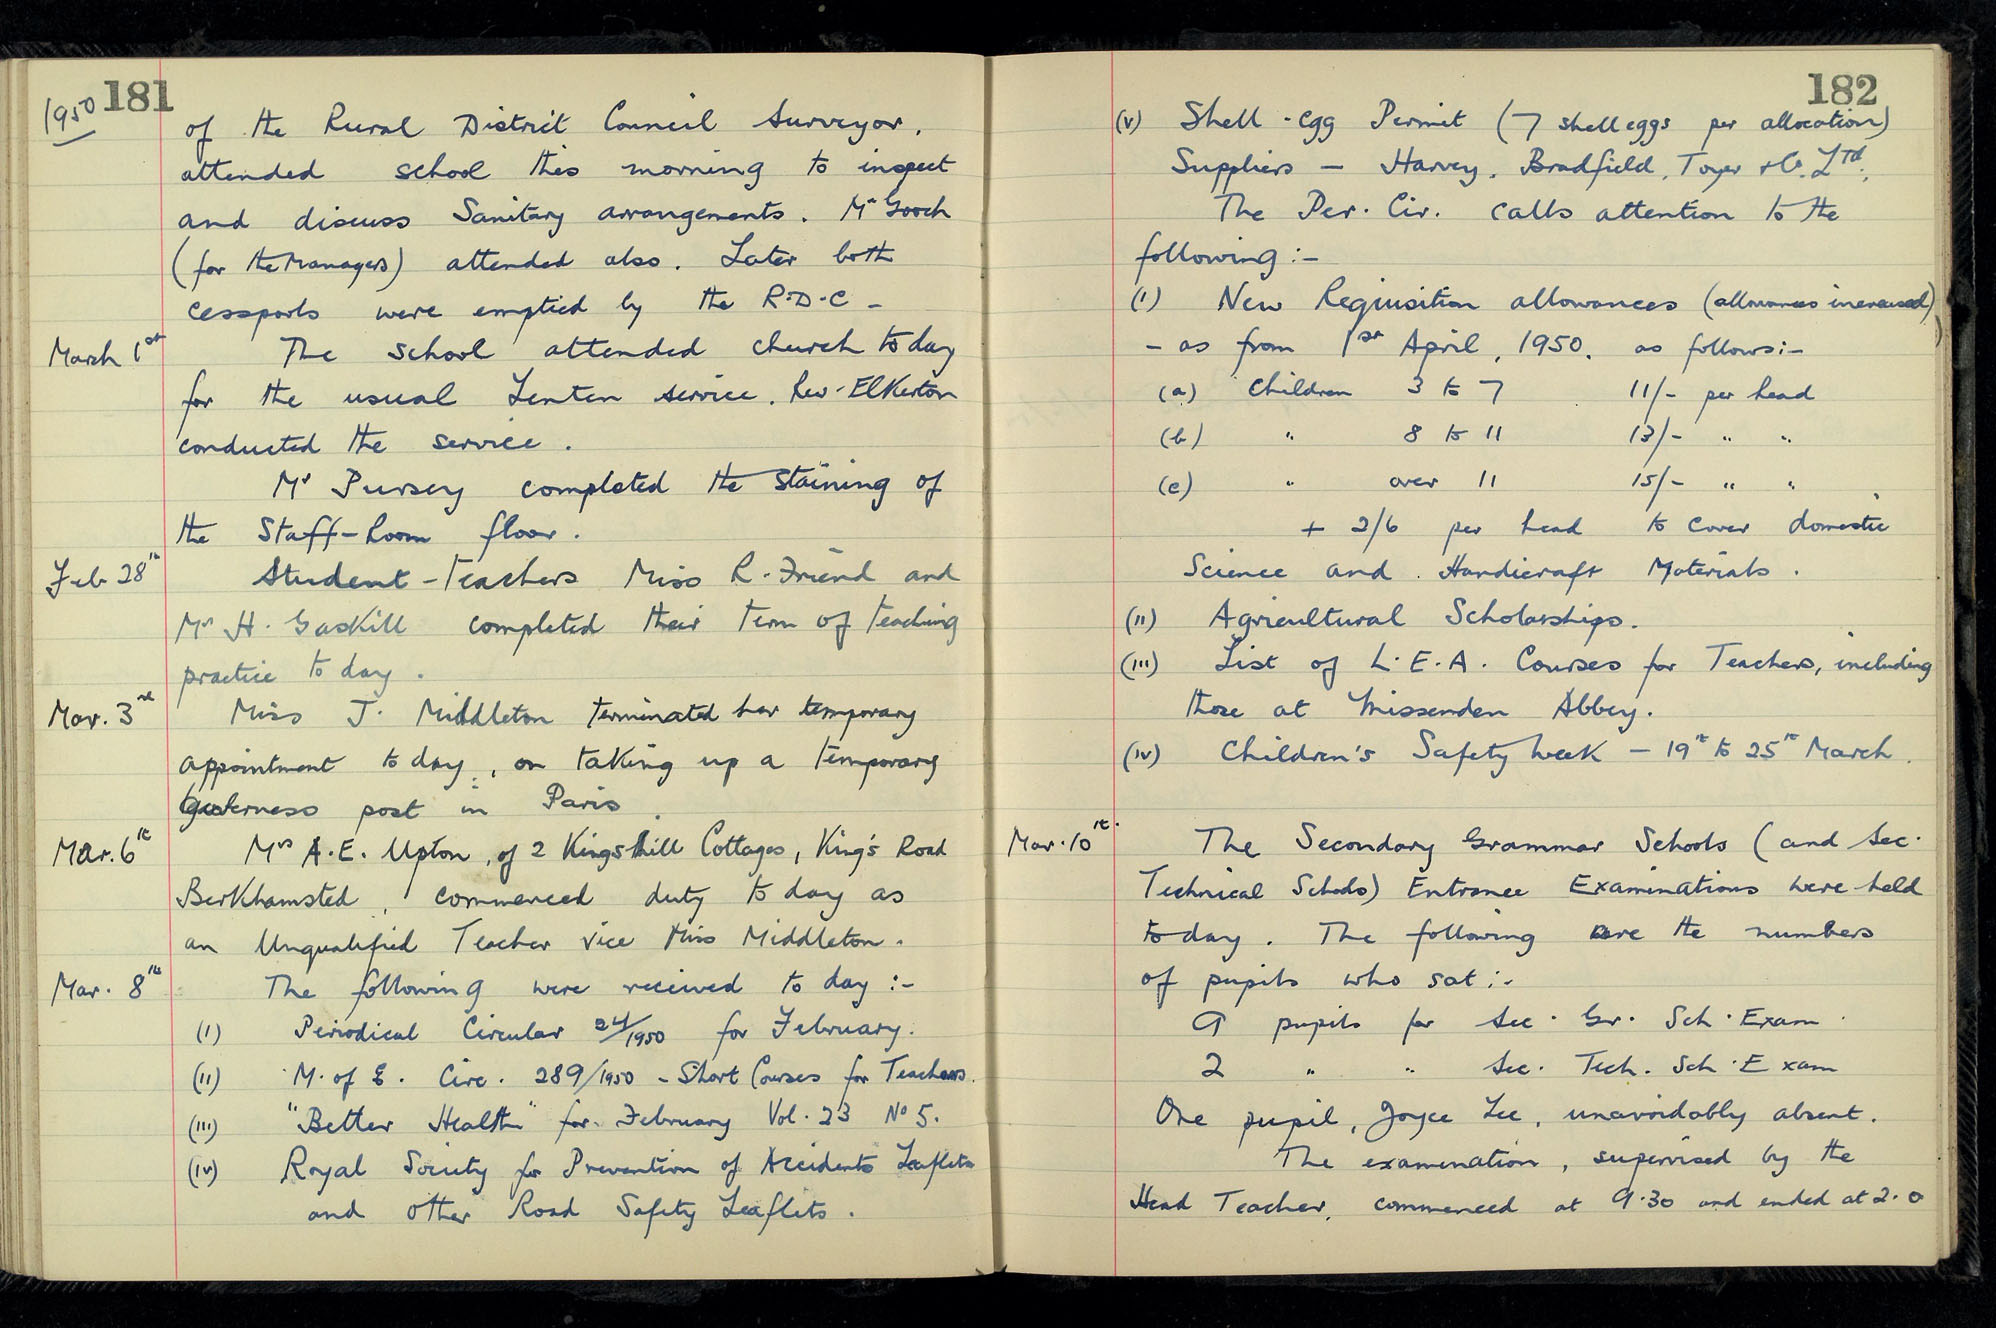 1950
181
of the Rural District Council Surveyor,
attended school this morning to inspect
and discuss Sanitary arrangements. Mr Gooch
(for the Managers) attended also. Later both
cesspools were emptied by the R.D.C -
March 1st The school attended church to day
for the usual Lenten service. Rev. Elkerton
conducted the service.
Mr Pursey completed the staining of
the Staff-Room floor.
Feb 28th Student-Teachers Miss R. Friend and
Mr H. Gaskill completed their term of teaching
practice to day.
Mar. 3rd Miss J. Middleton terminated her temporary
appointment to day, on taking up a temporary
Governess post in Paris.
Mar. 6th Mrs A.E. Upton, of 2 Kingshill Cottages, King's Road
Berkhamsted, commenced duty to day as
an Unqualified Teacher vice Miss Middleton.
Mar. 8th The following were received to day :-
(I) Periodical Circular 24/1950 for February.
(II) M. of E. Circ. 289/1950 - Short Courses for Teachers.
(III) "Better Health" for February Vol. 23 No 5.
(IV) Royal Society for Prevention of Accidents Leaflets
and other Road Safety Leaflets.
182
(V) Shell-egg Permit (7 shell eggs per allocation)
Suppliers - Harvey, Bradfield, Toyer & Co. Ltd.,
The Per. Cir. calls attention to the
following :-
(I) New Requisition allowances (allowances increased)
- as from 1st April, 1950, as follows:-
(a) Children 3 to 7 11/- per head
(b) " 8 to 11 13/- " "
(c) " over 11 15/- " "
+ 2/6 per head to cover domestic
Science and Handicraft Materials.
(II) Agricultural Scholarships.
(III) List of L.E.A. Courses for Teachers, including
those at Missenden Abbey.
(IV) Children's Safety Week - 19th to 25th March.
Mar. 10th. The Secondary Grammar Schools (and Sec.
Technical Schools) Entrance Examinations were held
to day. The following are the numbers
of pupils who sat :-
9 pupils for Sec. Gr. Sch. Exam.
2 " " Sec. Tech. Sch. Exam
One pupil, Joyce Lee, unavoidably absent.
The examination, supervised by the
Head Teacher, commenced at 9.30 and ended at 2.0